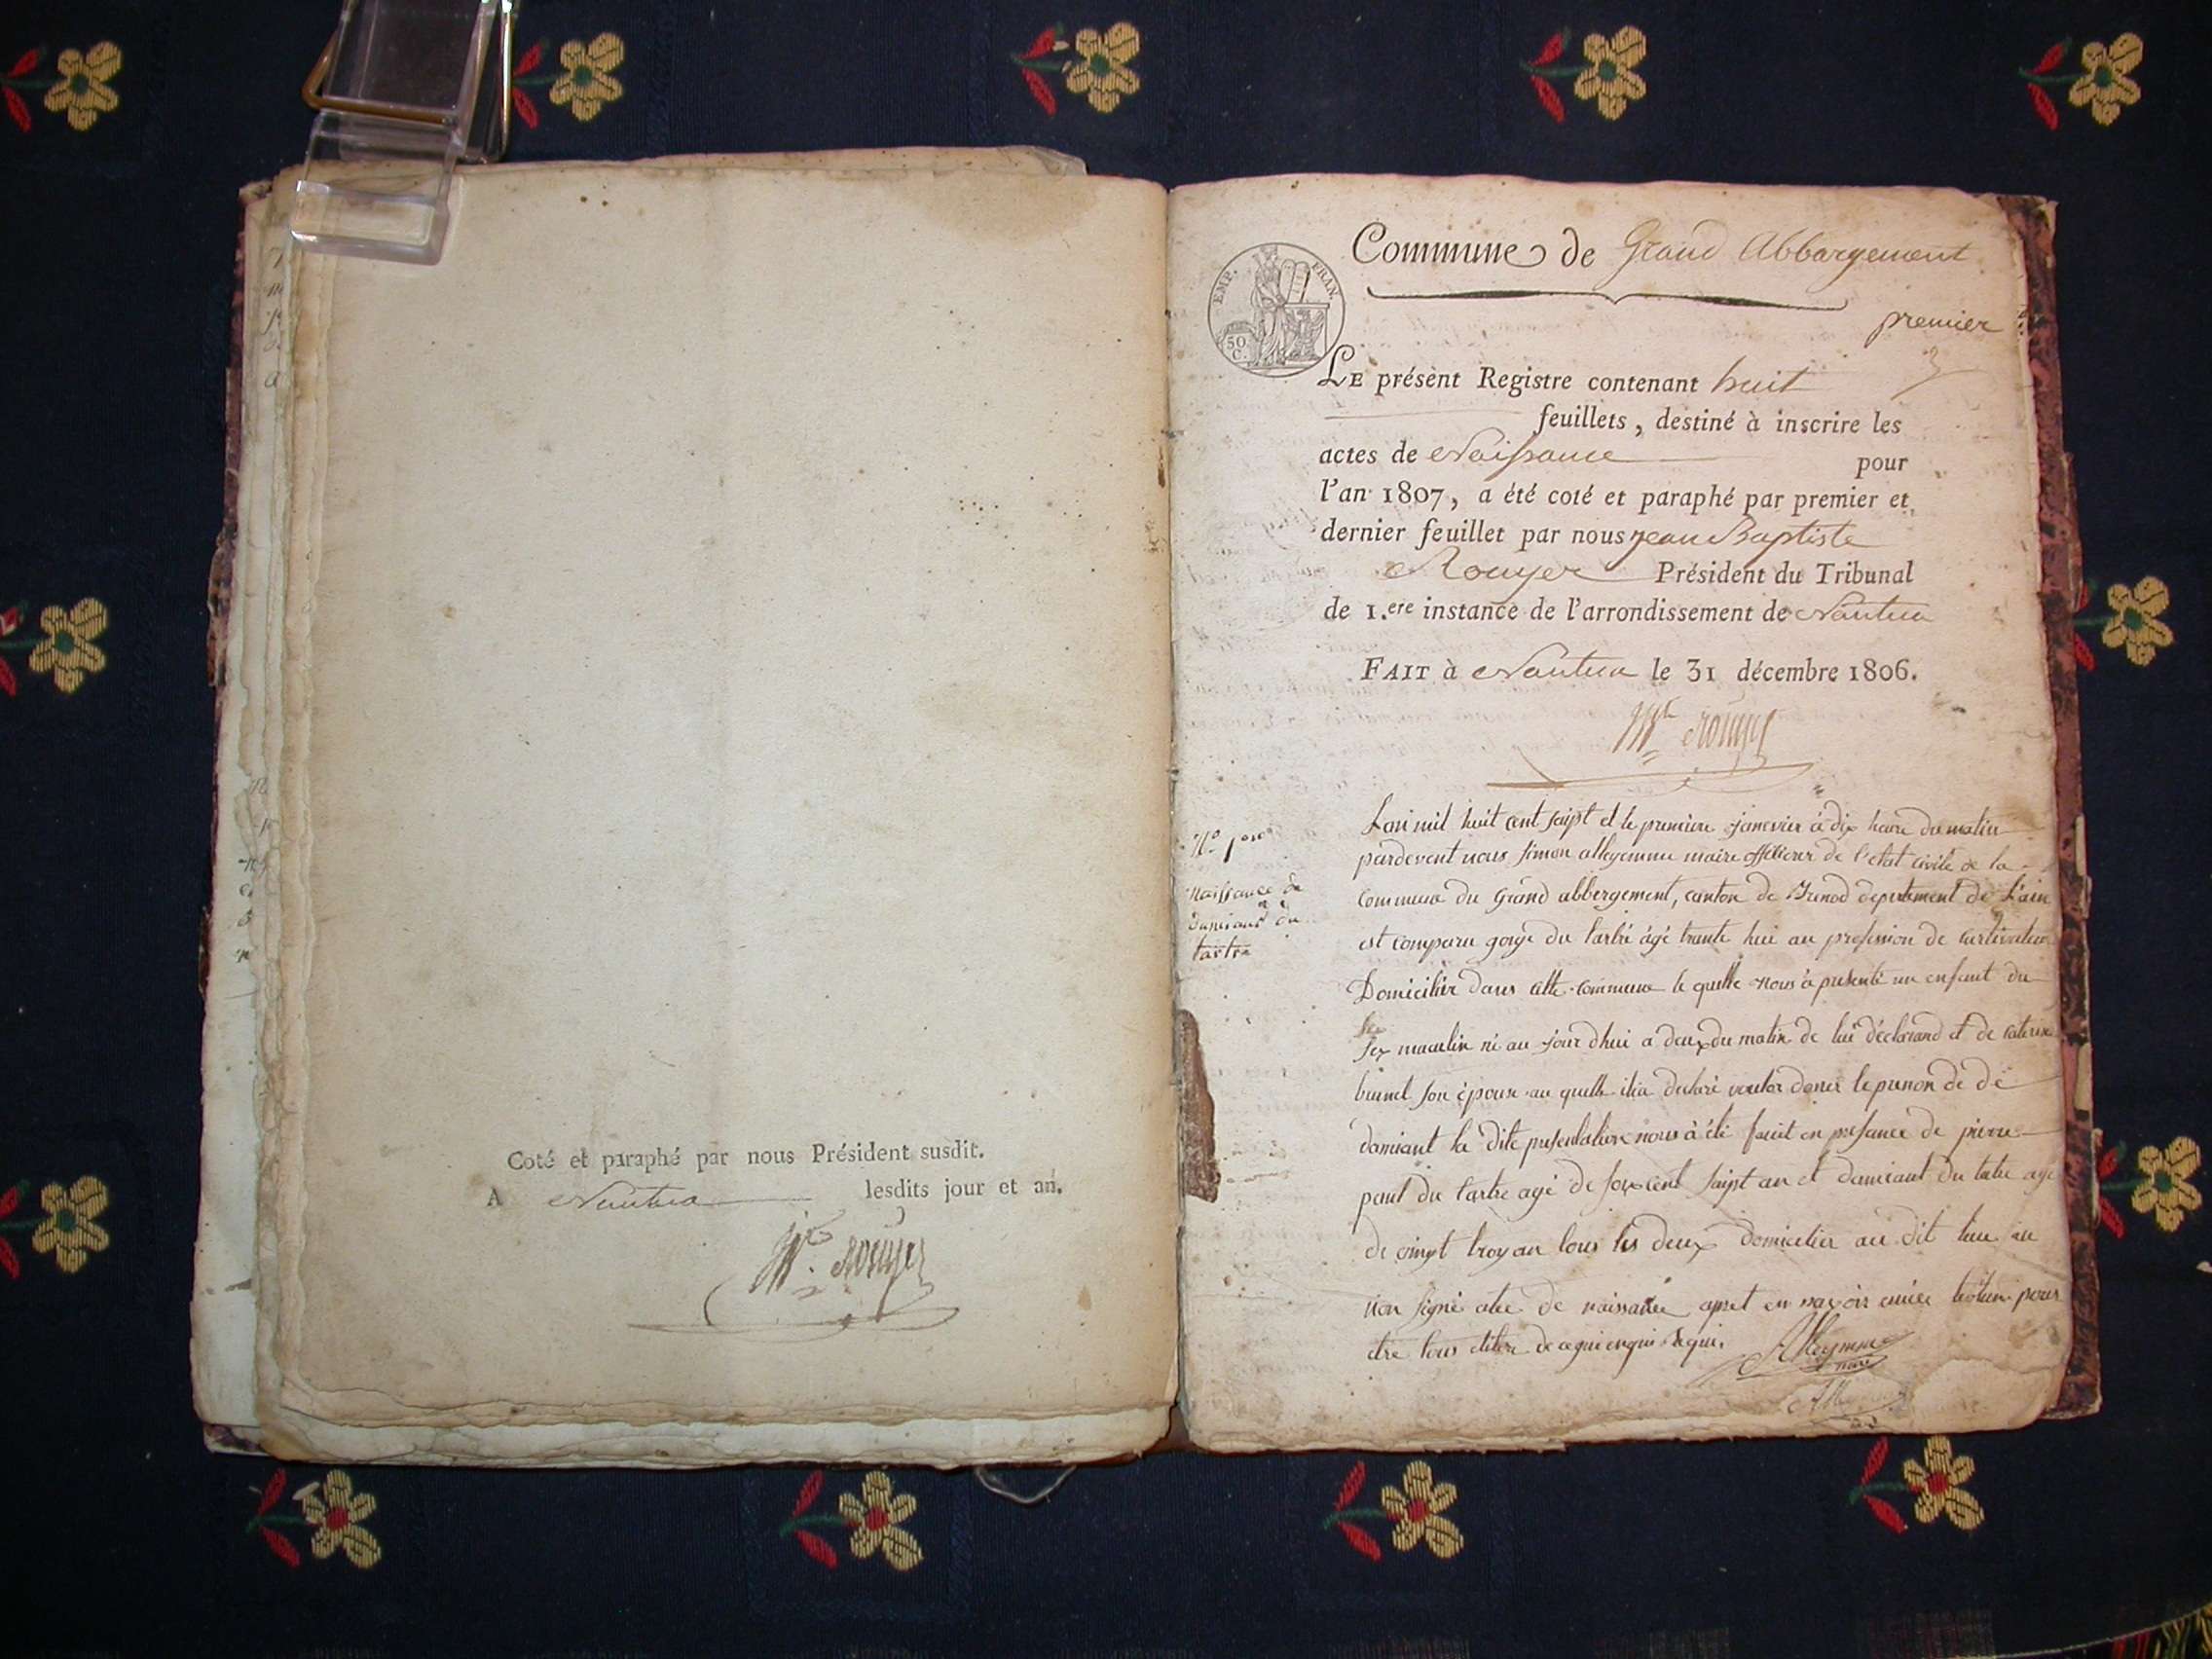 Coté et paraphé par nous Président susdit.
A Nantua lesdits jour et an.
Rouyer
Commune de Grand Abbargement
EMP. FRAN.
50
C.
premier
LE présent Registre contenant huit
feuillets, destiné à inscrire les
actes de Naissance pour
l'an 1807, a été coté et paraphé par premier et
dernier feuillet par nous jean Baptiste
Rouyer Président du Tribunal
de 1.ere instance de l'arrondissement de Nantua
FAIT à Nantua le 31 décembre 1806.
Rouyer
N.o 1er
Naissance de
damiant du
tartre
Lan mil huit cent saipt et le premiere janevier à dix heure du matin
pardevent nous simon alleyemme maire officier de l'etat civile de la
commune du grand abbergement, canton de Brenod departement de L'ain
est comparu gorge du tartre âgé trante hui an profession de curtivateur
Domicilier dans cette commune le quelle nous à presenté un enfant du
sex
sex maculin né au jour dhui a deux du matin de lui déclarand et de caterine
brunel son épouse au quelle il a declaré vouloir doner le prenon de de
damiant la dite presentation nous à été fuit en presance de pierre
paul du tartre agé de soixcent saipt an et damiant du tatre age
de vingt troy an tous les deux domicilier au dit lieu
non signé ate de naissance apret en savoir pour
etre tous de
Alleymme
maire